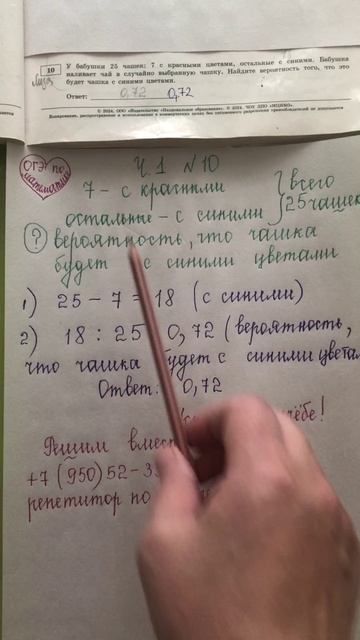 10
У бабушки 25 чашек: 7 с красными цветами, остальные с синими. Бабушка
наливает чай в случайно выбранную чашку. Найдите вероятность того, что это
будет чашка с синими цветами.
Ответ: 0,72 0,72
© 2024, ООО «Издательство «Национальное образование», © 2024,
Копирование, распространение и использование в коммерческих целях без письменного разрешения правообладателя не допускается
ОГЭ по
математике
Ч.1 №10
7 - с красными
остальные - с синими
всего
25 чашек
? вероятность, что чашка
будет с синими цветами
1) 25 - 7 = 18 (с синими)
2) 18 : 25 0,72 (вероятность,
что чашка будет с синими
Ответ: 0,72
Решим
+7 (950) 52-
репетитор по